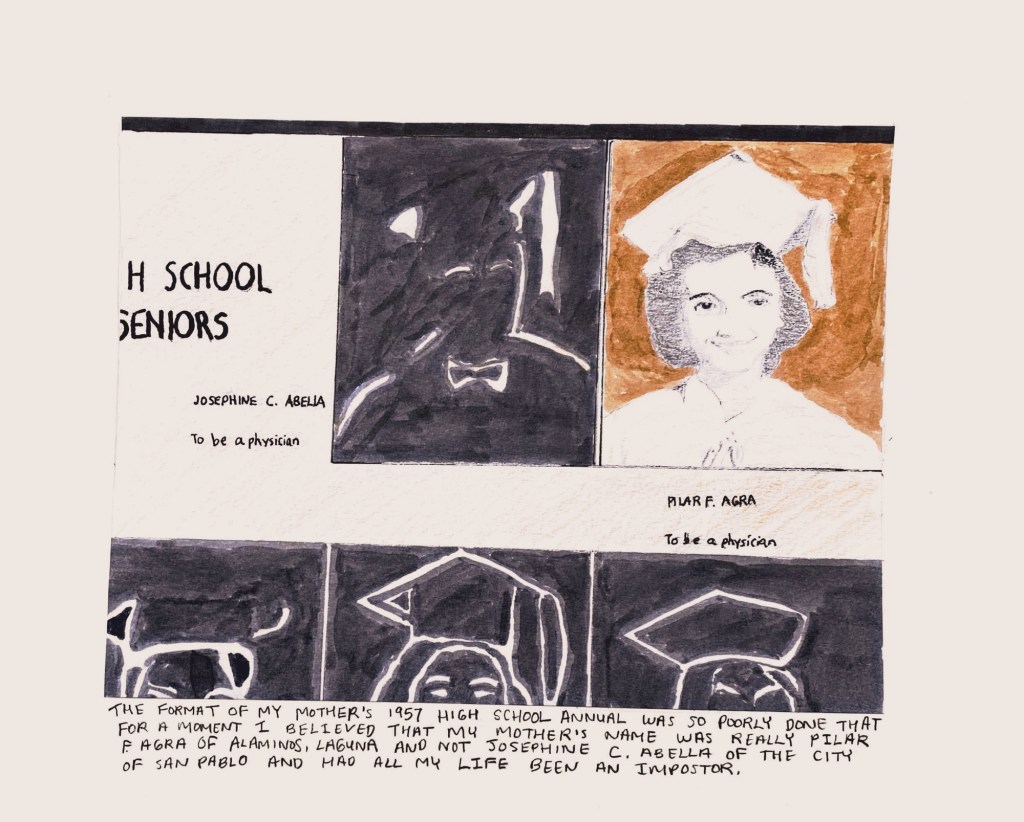 H SCHOOL
SENIORS
JOSEPHINE C. ABELLA
To be a physician
PILAR F. AGRA
To be a physician
THE FORMAT OF MY MOTHER'S 1957 HIGH SCHOOL ANNUAL WAS SO POORLY DONE THAT
FOR A MOMENT I BELIEVED THAT MY MOTHER'S NAME WAS REALLY PILAR
F. AGRA OF ALAMINOS, LAGUNA AND NOT JOSEPHINE C. ABELLA OF THE CITY
OF SAN PABLO AND HAD ALL MY LIFE BEEN AN IMPOSTOR.